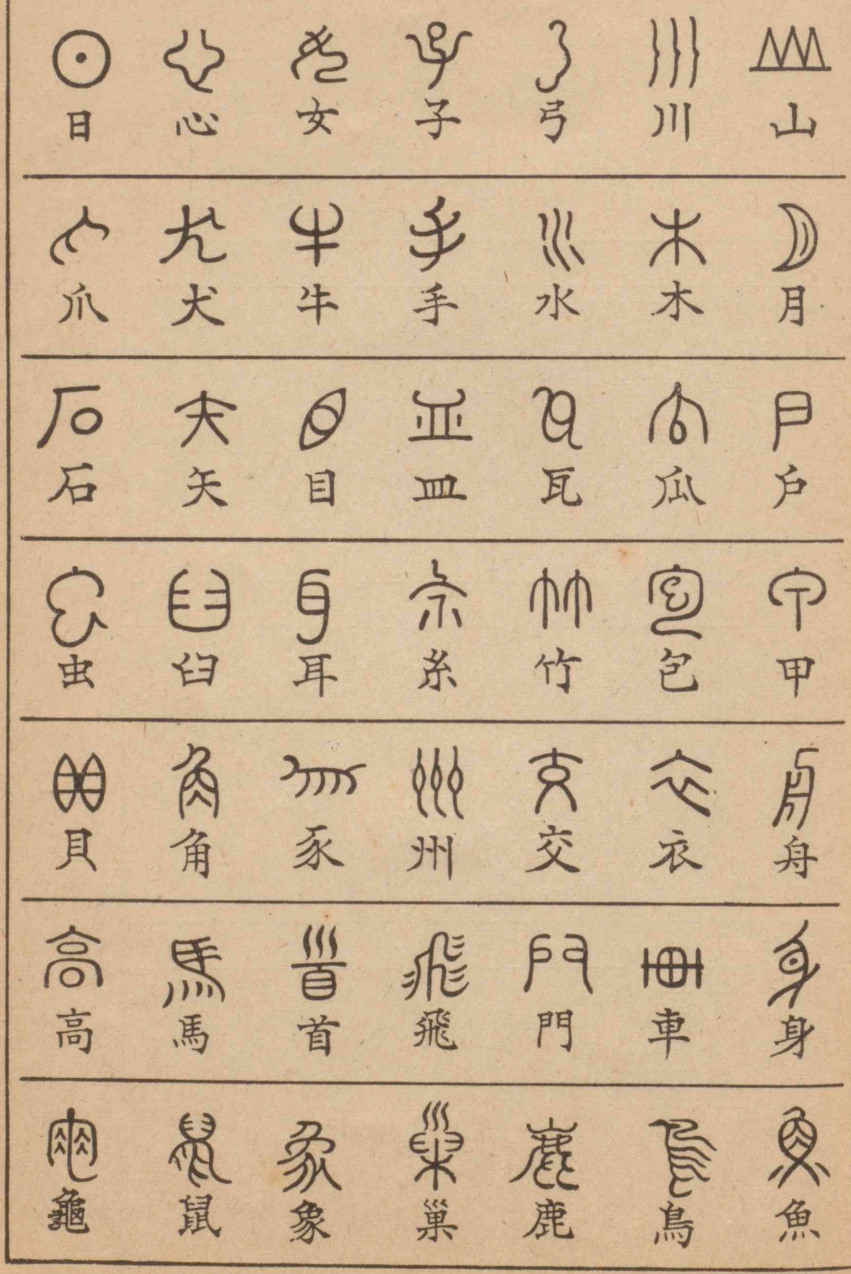 山 川 弓 子 女 心 日
月 木 水 手 牛 犬 爪
戶 瓜 瓦 皿 目 矢 石
甲 包 竹 糸 耳 臼 虫
舟 衣 交 州 豕 角 貝
身 車 門 飛 首 馬 高
魚 鳥 鹿 巢 象 鼠 龜